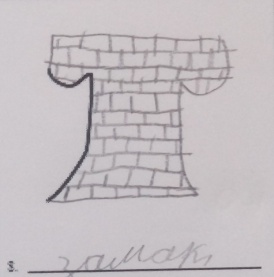 8. замакі